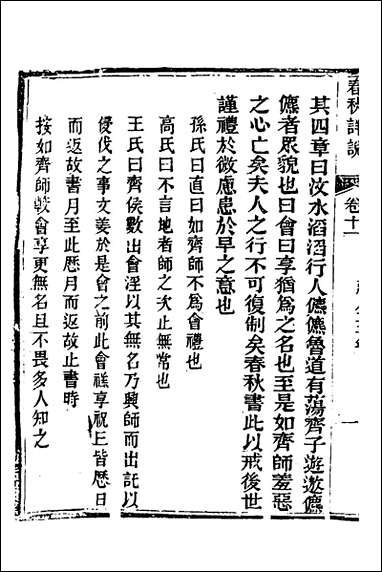 春秋詳說
卷十一
其四章曰汶水滔滔行人儦儦魯道有蕩齊子遊遨儦
儦者眾貌也曰會曰享猶為之名也至是如齊師羞惡
之心亡矣夫人之行不可復制矣春秋書此以戒後世
謹禮於微慮患於早之意也
孫氏曰直曰如齊師不為會禮也
高氏曰不言地者師之次止無常也
王氏曰齊侯數出會淫以其無名乃興師而出託以
侵伐之事文姜於是會之前此會禚享祝丘皆歷日
而返故書月至此歷月而返故止書時
按如齊師較會享更無名且不畏多人知之